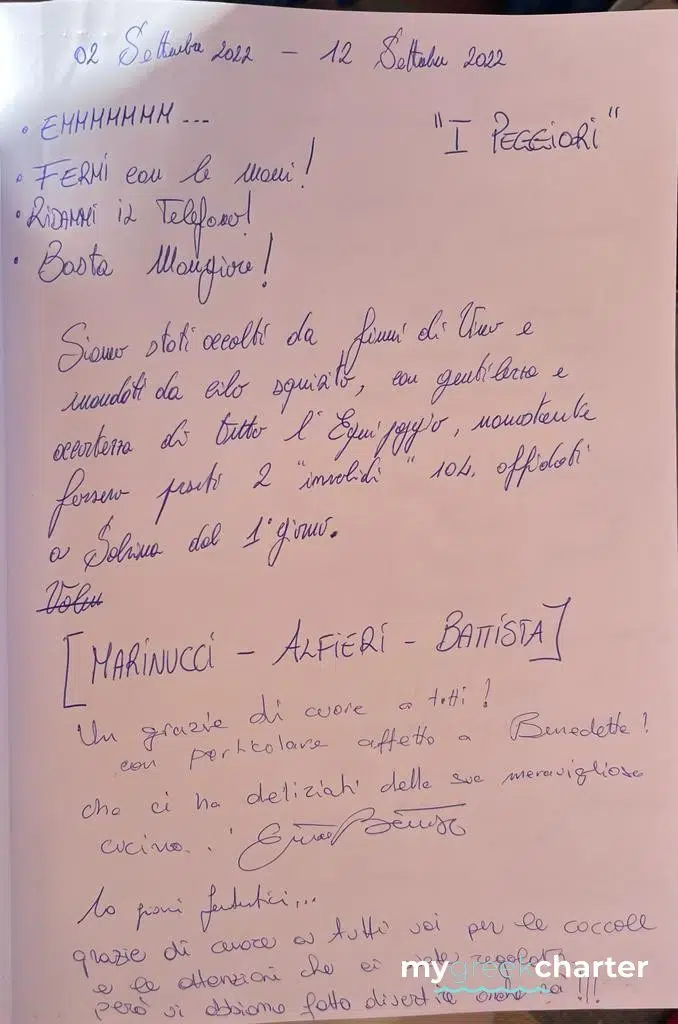 02 Settembre 2022 — 12 Settembre 2022
• EHMMMMMM...
"I PEGGIORI"
• FERMI con le mani!
• RIDAMMI il Telefono!
• Basta Mangiare!
Siamo stati accolti da fiumi di Vino e
inondati da cibo squisito, con gentilezza e
accortezza di tutto l'Equipaggio, nonostante
fossero presenti 2 "invalidi" 104. affidati
a Sabrina dal 1° giorno.
[MARINUCCI - ALFIERI - BATTISTA]
Un grazie di cuore a tutti!
con particolare affetto a Benedetta!
che ci ha deliziati della sua meravigliosa
cucina..!
10 giorni fantastici...
grazie di cuore a tutti voi per le coccole
e le attenzioni che ci avete regalato
però vi abbiamo fatto divertire anche
mygreekcharter